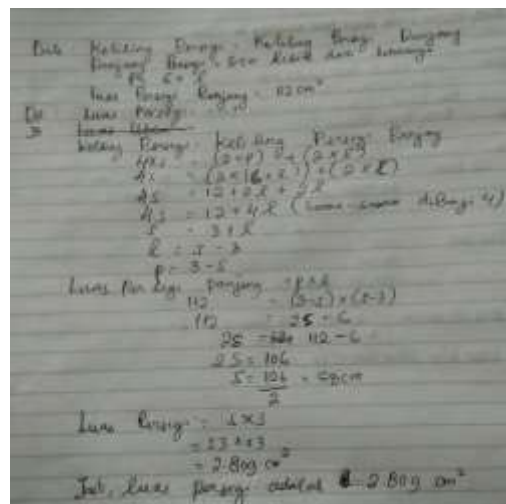 Keliling Persegi = Keliling Persegi Panjang
Panjang Persegi 6cm lebih dari lebarnya
P = 6 + l
luas Persegi Panjang = 112 cm²
Luas Persegi
Keliling Persegi = Keliling Persegi Panjang
4×s = (2×P) + (2×l)
4s = (2×(6+l)) + (2×l)
4s = 12 + 2l + 2l
4s = 12 + 4l (sama-sama dibagi 4)
s = 3 + l
l = s - 3
P = 3 - s
Luas Persegi panjang = p×l
112 = (3-s)×(s-3)
112 = 2s - 6
2s = 112 - 6
2s = 106
s = 106 = 53cm
2
Luas Persegi = s×s
= 53×53
= 2.809 cm²
Jadi, luas persegi adalah 2.809 cm²